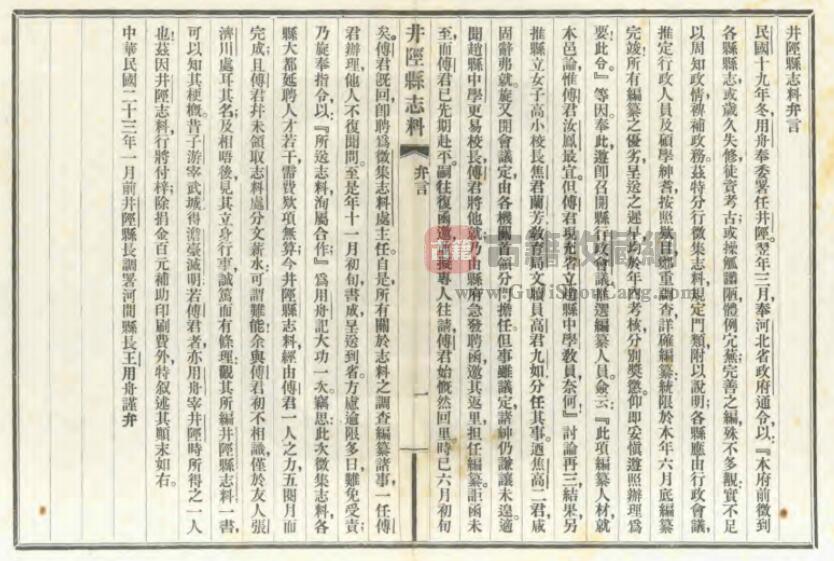 井陘縣志料弁言
民國十九年冬,用舟奉委署任井陘。翌年三月奉河北省政府通令,以『本府前徵到
各縣縣志,或歲久失修,徒資考古;或操觚譾陋,體例宂蕪,完善之編,殊不多覯,實不足
以周知政情,裨補政務。茲特分行徵集志料,規定門類,附以說明;各縣應由行政會議,
推定行政人員及碩學紳耆,按照款目,鄭重調查,詳確編纂,統限於本年六月底編纂
完竣。所有編纂之優劣,呈送之遲早,均於年內考核,分別獎懲。仰即妥愼遵照辦理爲
要,此令。』等因。奉此,遵即召開縣行政會議,推選編纂人員。僉云:『此項編纂人材,就
本邑論,惟傅君汝鳳最宜。但傅君現充省立趙縣中學敎員,奈何』討論再三,結果另
推縣立女子高小校長焦君蘭芳,敎育局文牘員高君九如分任其事。迺焦高二君咸
固辭弗就。旋又開會議定,由各機關 領分門擔任。但事雖議定,諸紳仍謙讓未遑。適
聞趙縣中學更易校長,傅君將他就,乃由縣府急發聘函,邀其返里,担任編纂。詎函未
至,而傅君已先期赴平。嗣往復函邀, 復專人往請,傅君始慨然回里,時已六月初旬
矣。傅君既回,卽聘爲徵集志料處主任。自是所有關於志料之調查編纂諸事,一任傅
君辦理,他人不復聞問。至是年十一月初旬,書成,呈送到省。方慮逾限多日,難免受責;
乃旋奉指令,以『所送志料,洵屬合作』爲用舟記大功一次。竊思此次徵集志料,各
縣大都延聘人才若干,需費欵項無算;今井陘縣志料,經由傅君一人之力,五閱月而
完成;且傅君幷未領取志料處分文薪水,可謂難能。余與傅君初不相識,僅於友人張
濟川處耳其名;及相晤後,見其立身行事,誠篤而有條理;觀其所編井陘縣志料一書,
可以知其梗槪。昔子游宰武城,得澹臺滅明;若傅君者,亦用舟宰井陘時所得之一人
也。茲因井陘志料,行將付梓,除捐金百元補助印刷費外,特叙述其顚末如右。
中華民國二十三年一月前井陘縣長調署河間縣長王用舟謹弁
井陘縣志料
弁言
一
古籍
古籍收藏網
www.GuJiShouCang.com